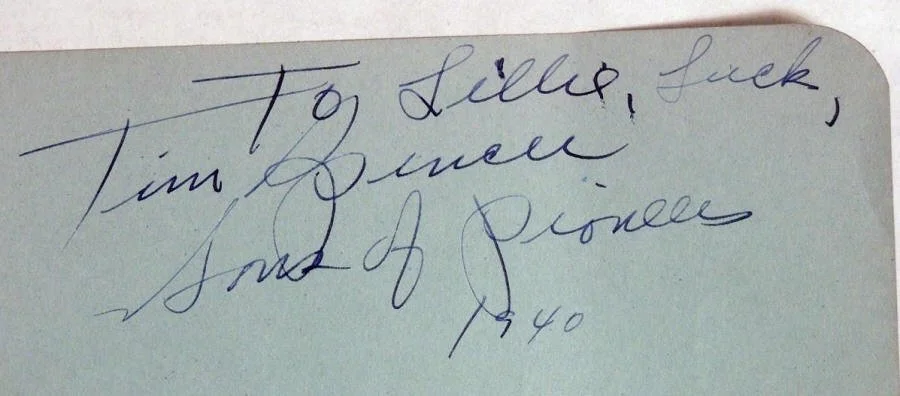 To Lillie, Luck,
Tim Spencer
Sons of Pioneers
1940